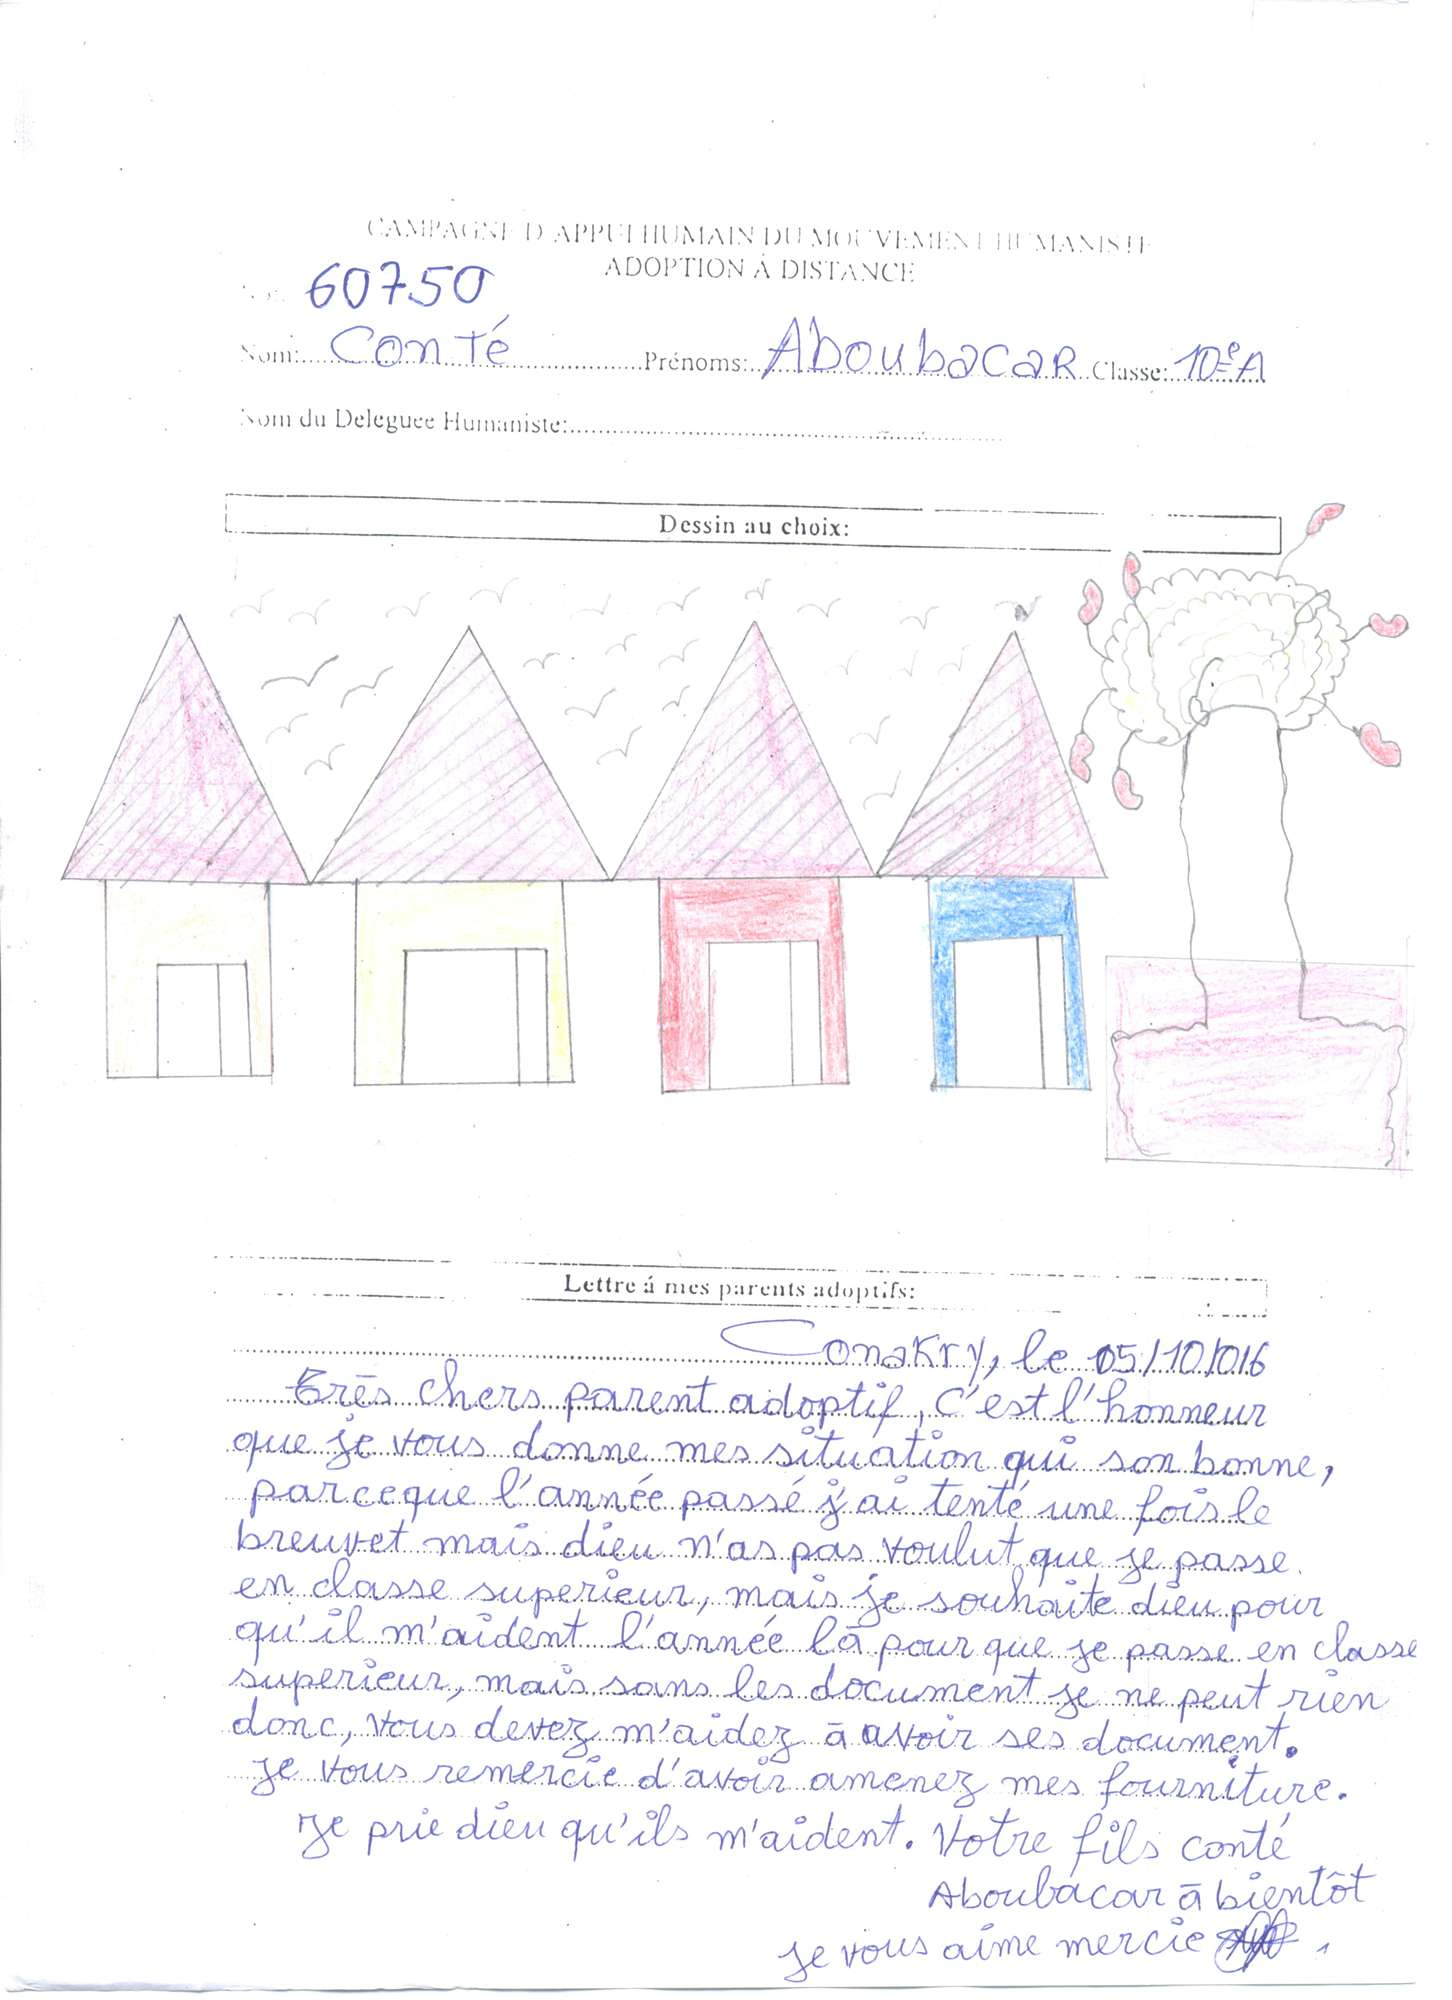 CAMPAGNE D'APPUI HUMAIN DU MOUVEMENT HUMANISTE
ADOPTION Á DISTANCE
60750
Nom: Conté Prénoms: Aboubacar Classe: 10e A
Nom du Deleguee Humaniste:
Dessin au choix:
Lettre á mes parents adoptifs:
Conakry, le 05/10/016
Très chers parent adoptif, C'est l'honneur
que je vous donne mes situation qui son bonne,
parceque l'année passé j'ai tenté une fois le
breuvet mais dieu n'as pas voulut que je passe
en classe superieur, mais je souhaite dieu pour
qu'il m'aident l'année là pour que je passe en classe
superieur, mais sans les document je ne peut rien
donc, vous devez m'aidez à avoir ses document.
je vous remercie d'avoir amenez mes fourniture.
Je prie dieu qu'ils m'aident. Votre fils conté
Aboubacar à bientôt
je vous aime mercie